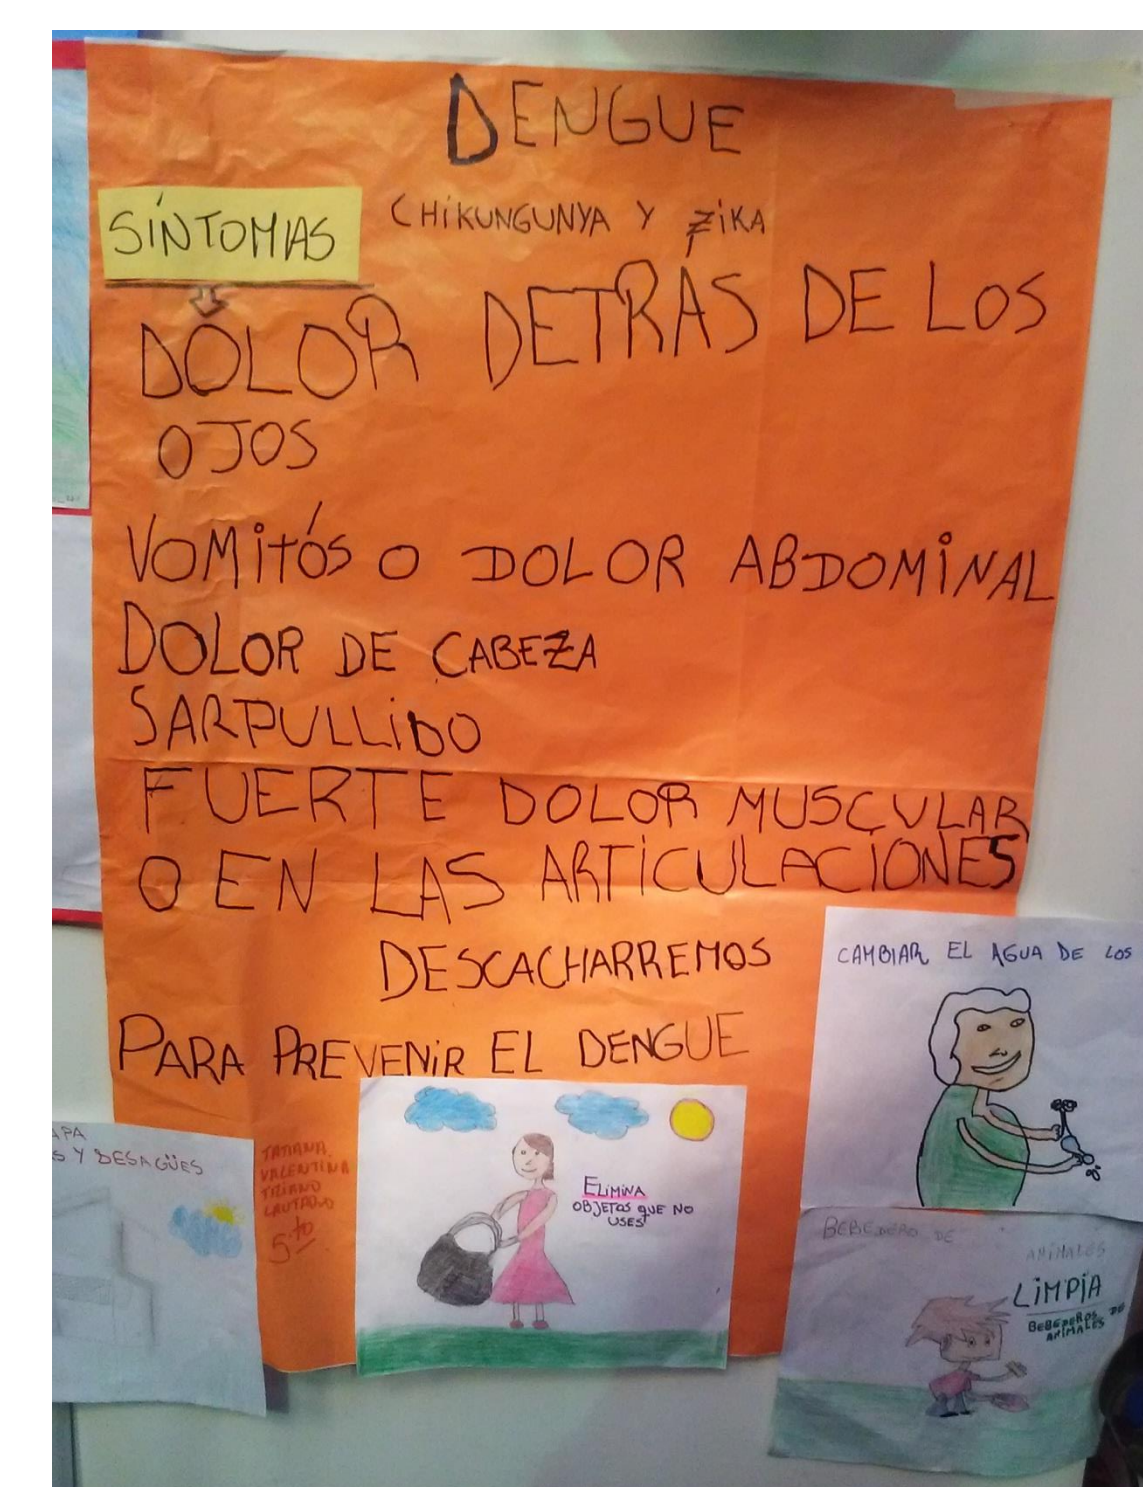 DENGUE
CHIKUNGUNYA Y ZIKA
SÍNTOMAS
DOLOR DETRÁS DE LOS
OJOS
VOMITÓS O DOLOR ABDOMINAL
DOLOR DE CABEZA
SARPULLIDO
FUERTE DOLOR MUSCULAR
O EN LAS ARTICULACIONES
DESCACHARREMOS
PARA PREVENIR EL DENGUE
CAMBIAR EL AGUA DE LOS
Y DESAGÜES
TATIANA
VALENTINA
LAUTARO
5to
ELIMINA
OBJETOS QUE NO
USES
BEBEDERO DE
ANIMALES
LIMPIA
BEBEDEROS DE
ANIMALES